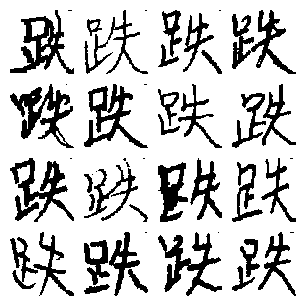 跌跌跌跌
跌跌跌跌
跌跌跌跌
跌跌跌跌